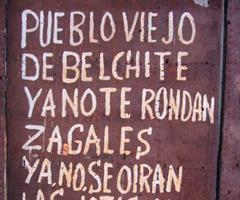 PUEBLO VIEJO
DE BELCHITE
YA NO TE RONDAN
ZAGALES
YA. NO. SE OIRAN
LAS JOTAS